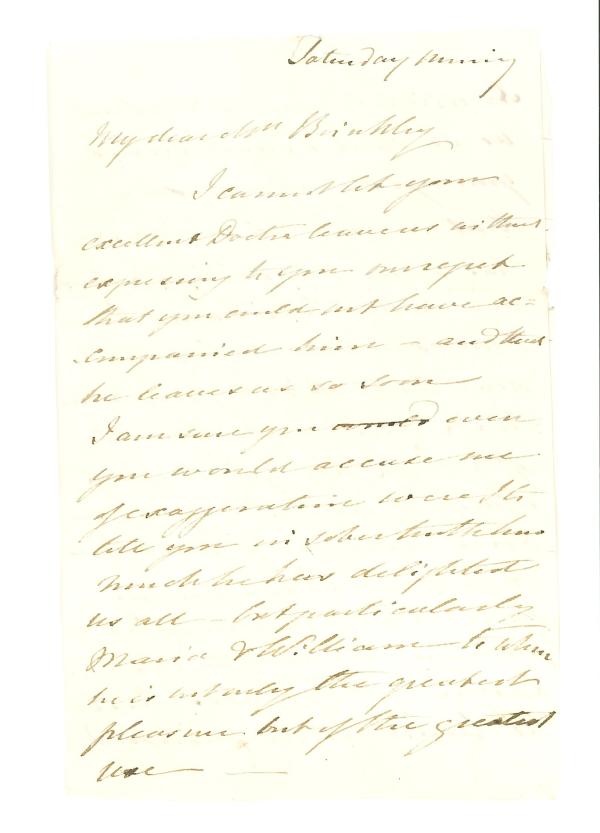 Saturday morning
My dear Mrs Brinkley
I cannot let your
excellent Doctor leave us without
expressing to you our regret
that you could not have ac=
companied him – and that
he leaves us so soon
I am sure you could even
you would accuse me
of exaggeration were I to
tell you in sober truth how
much he has delighted
us all – but particularly
Maria & William – to whom
he is not only the greatest
pleasure but of the greatest
use —